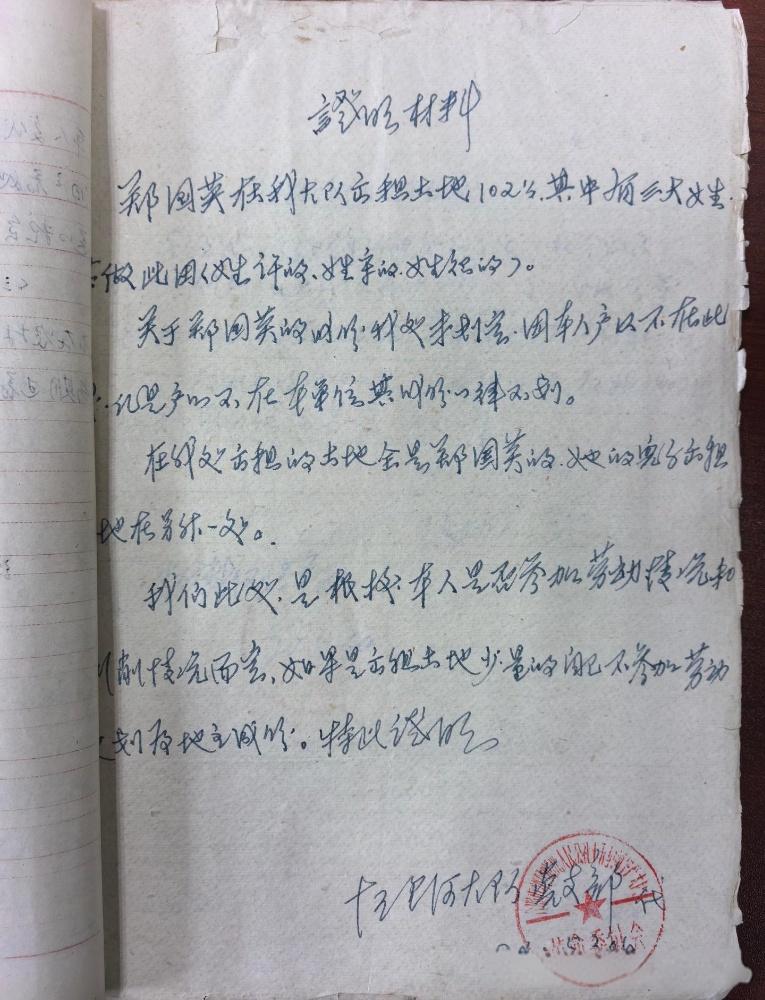 證明材料
郑国英在我大队出租土地102亩、其中有三大姓
做此田（姓许的、姓辛的、姓纪的）。
关于郑国英的成份我处未划定、因本人户口不在此
凡是户口不在本单位其成份一律不划。
在我处出租的土地全是郑国英的、她的儿子出租
地在另外一处。
我们此处、是根据本人是否参加劳动情况和
削情况而定、如果是出租土地少量的自己不参加劳动
划为地主成份。特此证明
十五里河大队党支部